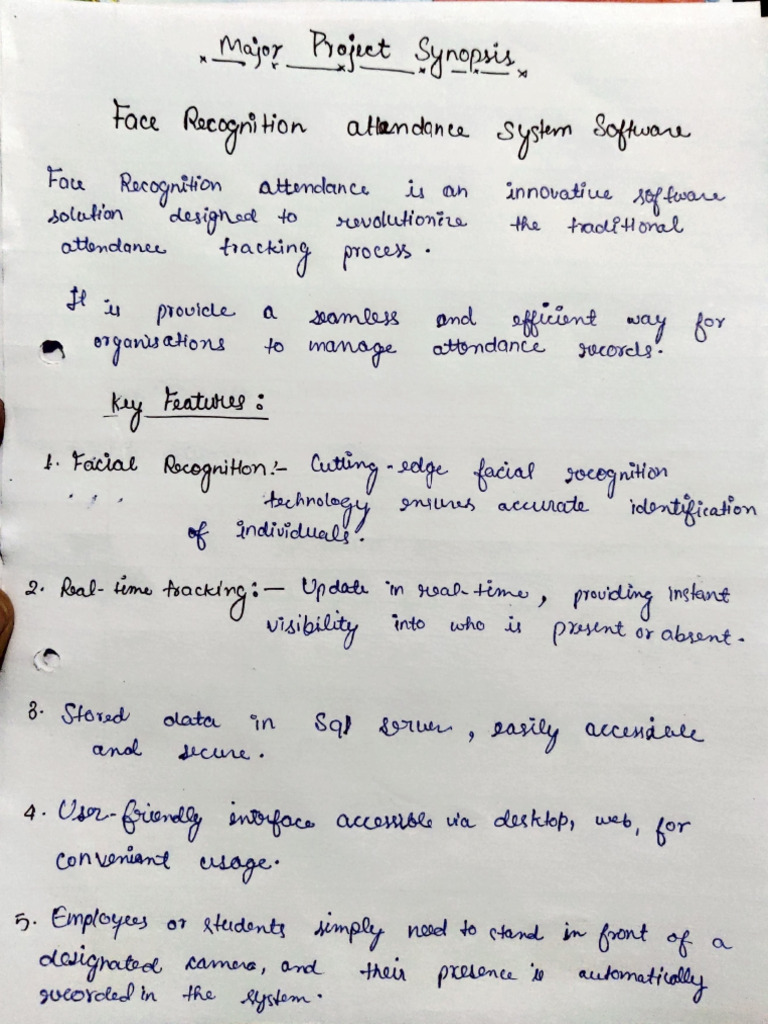 Major Project Synopsis
Face Recognition attendance System Software
Face Recognition attendance is an innovative software
solution designed to revolutionize the traditional
attendance tracking process.
It is provide a seamless and efficient way for
organisations to manage attendance records.
Key Features:
1. Facial Recognition:- Cutting-edge facial recognition
technology ensures accurate identification
of individuals.
2. Real-time tracking:- Update in real-time, providing instant
visibility into who is present or absent.
3. Stored data in Sql server, easily accessible
and secure.
4. User-friendly interface accessible via desktop, web, for
convenient usage.
5. Employees or students simply need to stand in front of a
designated camera, and their presence is automatically
recorded in the system.